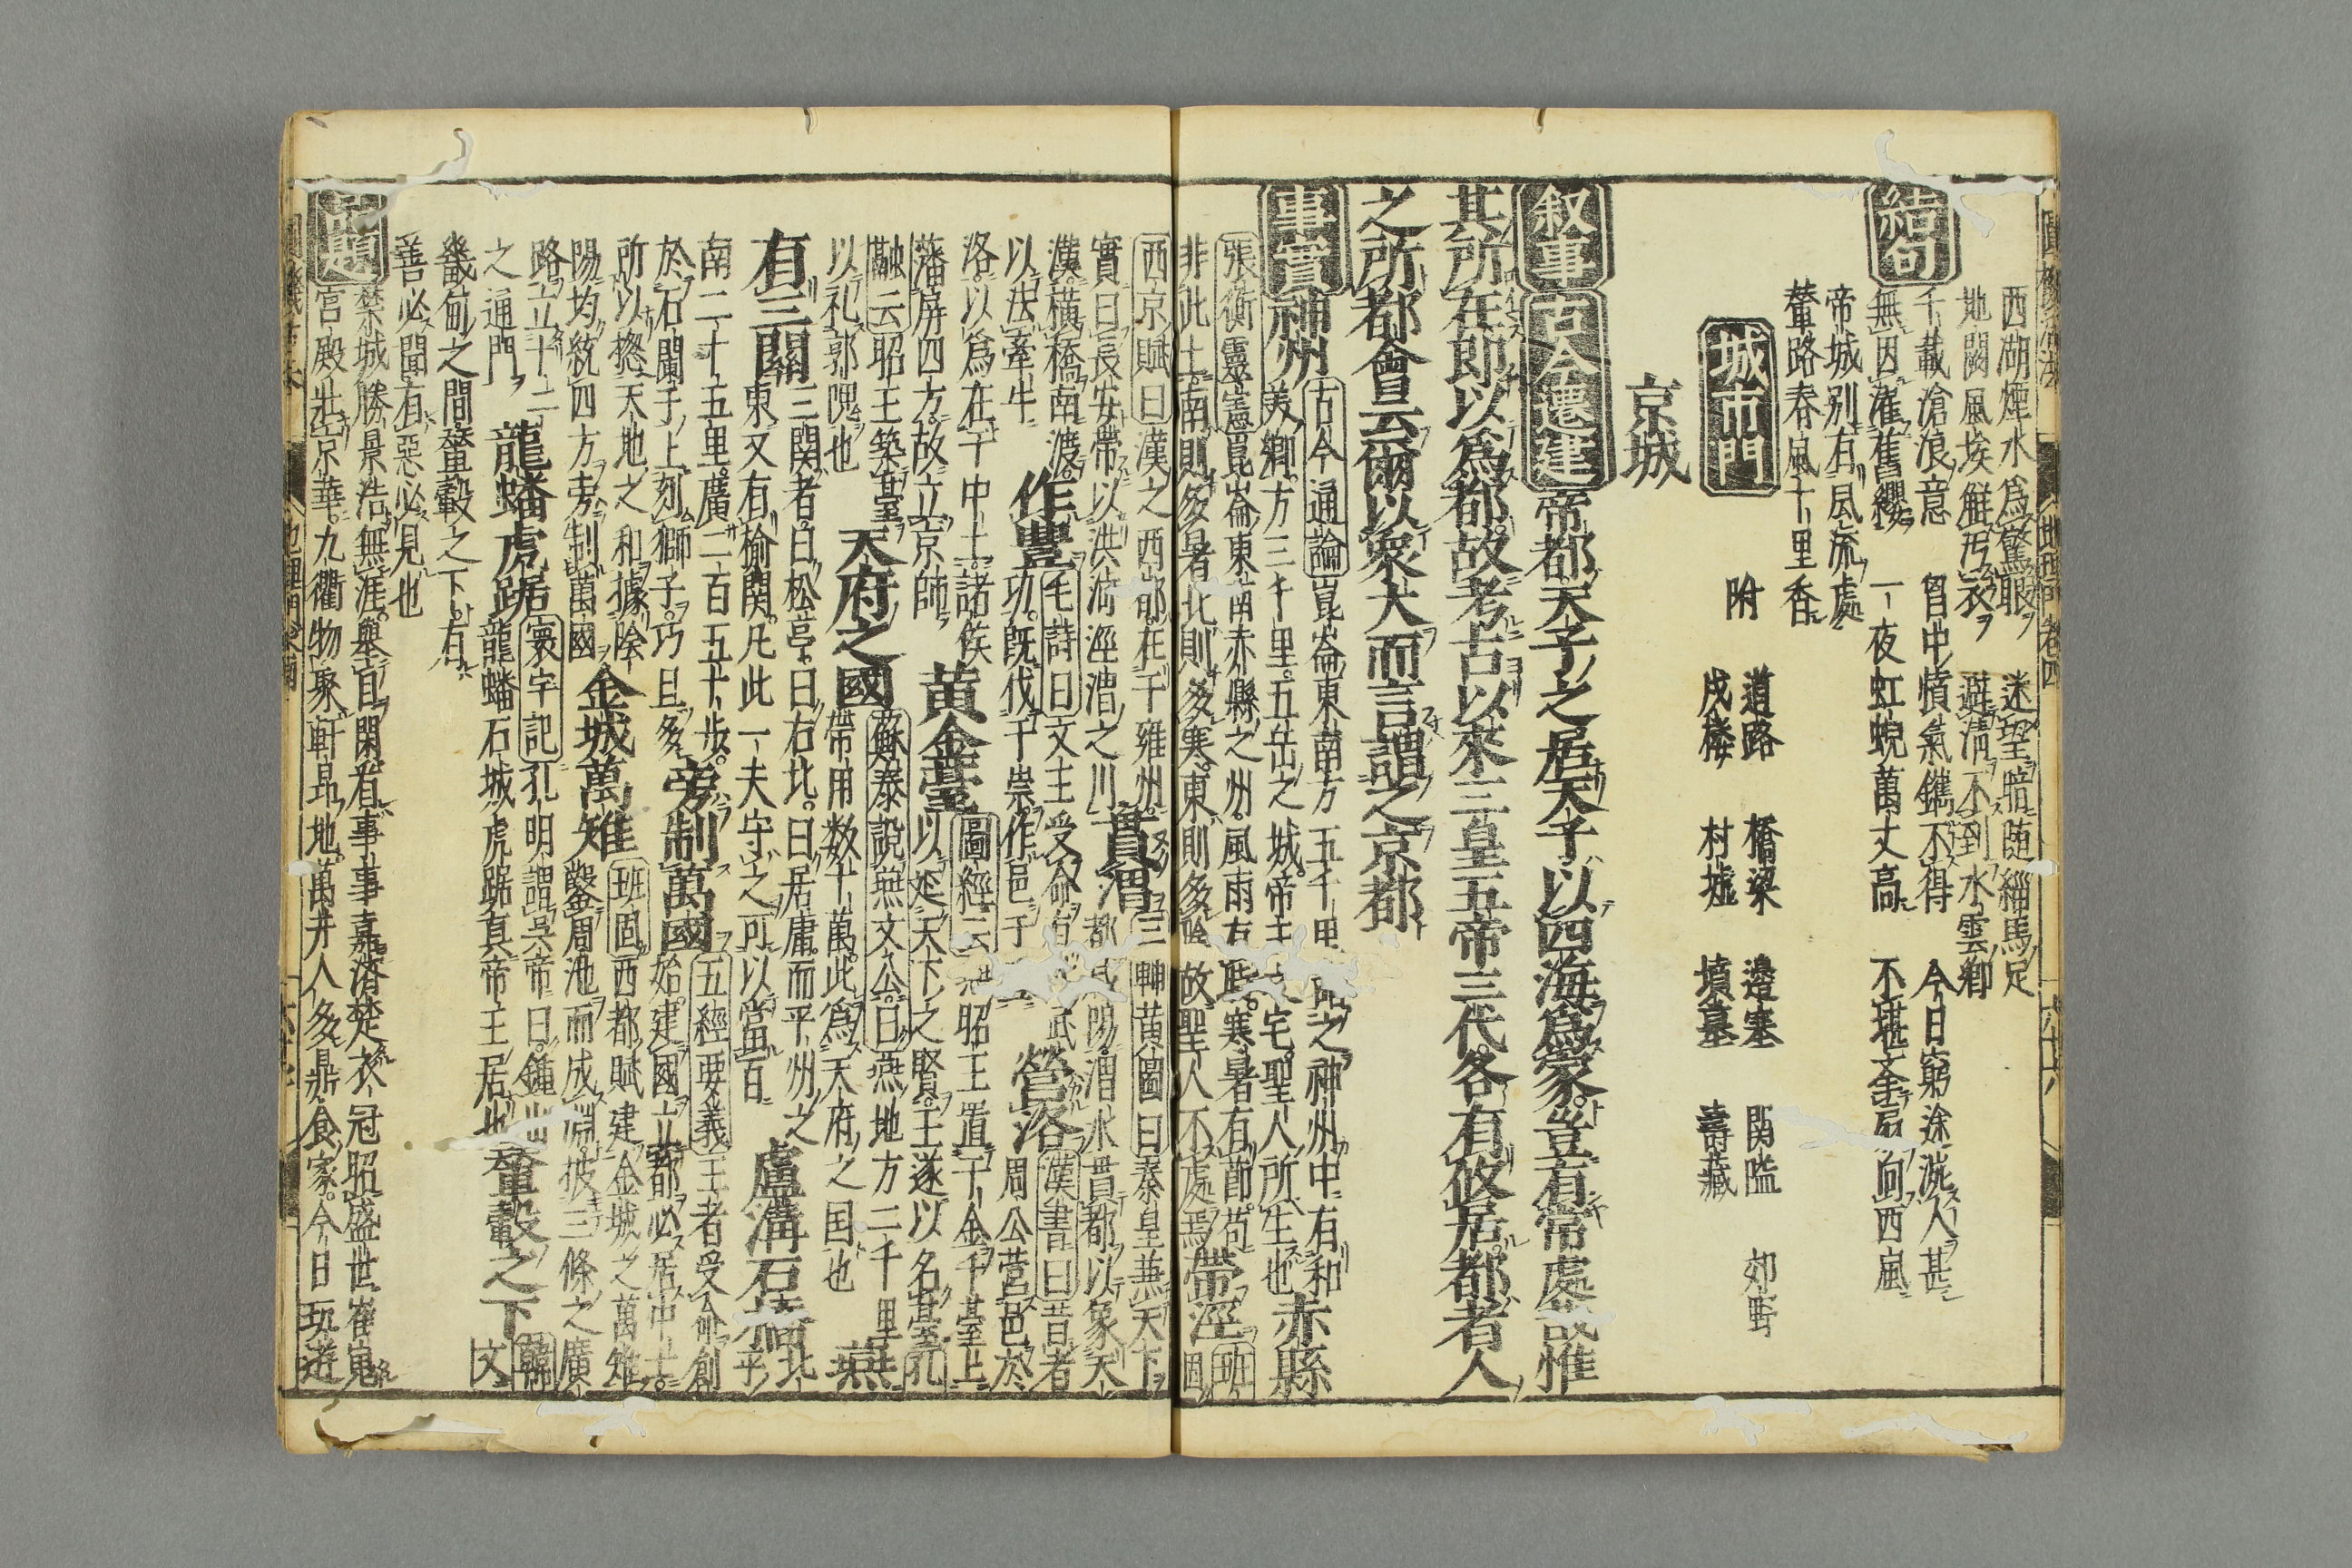 西湖煙水為驚眼　迷望暗隨緇馬足
地闊風埃鮮汚衣　避清不到水雲鄉
結句
千載滄浪意　胷中憤氣鐫不得　今日窮途漉人甚
無因濯舊纓　一夜虹蜺萬丈高　不堪西風
帝城別有風流處
輦路春風十里香
城市門
附
道路　橋梁　邊塞　関隘　郊野
戍楼　村墟　墳墓　壽藏
京城
叙事
古今遷建
帝都天子之居天子以四海為家豈有常處哉惟
其所在即以為都故考古以來三皇五帝三代各有攸居都者人
之所都會云爾以衆大而言謂之京都
事實
神州
古今通論崑崙東南方五千里之神州中有和
美鄉方三千里五岳之城帝王之宅聖人所生也
赤縣
張衡靈憲崑崙東南赤縣之州風雨有時寒暑有節苟
非此土南則多暑北則多寒東則多陰故聖人不處焉
帶涇
班固
西京賦曰漢之西都在于雍州
實曰長安帶以洪河涇渭之川
貫渭
三輔黄圖曰秦皇兼天下
都咸陽渭水貫都以象天
漢橫橋南渡
以法牽牛
作豐
毛詩曰文王受命有此武
功既伐于崇作邑于豐
營洛
漢書曰昔者
周公営邑於
洛以為在于中土諸侯
藩屏四方故立京師
黄金臺
圖經云燕昭王置千金于臺上
以延天下之賢王遂以名臺孔
融云昭王築臺
以礼郭隗也
天府之國
蘇秦說燕文公曰燕地方二千里
帶甲数十萬此為天府之国也
燕
有三關
三関者曰松亭曰右北曰居庸而平州之
東又有榆関凡此一夫守之可以當百
盧溝石橋
北
南二十五里廣二百五十步
於石闌子上刻獅子巧且多
旁制萬國
五經要義王者受命創
始建國立都必居中土
所以摠天地之和據陰
陽均統四方旁制萬國
金城萬雉
班固西都賦建金城之萬雉
鑿周池而成淵披三條之廣
路立十二
之通門
龍蟠虎踞
寰宇記孔明謂吳帝曰鍾山
龍蟠石城虎踞真帝王居也
輦轂之下
韓
文
畿甸之間輦轂之下有
善必聞有惡必見也
禁城勝景浩無涯舉首閑看事事嘉濟楚衣冠昭盛世崔嵬
宮殿壯京華九衢物聚軒昂地萬井人多鼎食家今日玩遊